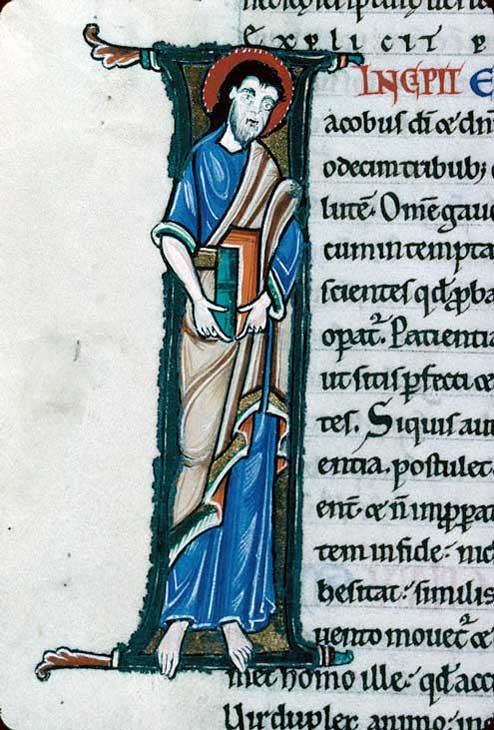 Explicit p
INCIPIT E
acobus dī & dn̄i
odecim tribub; 
lutē. Omē gaud
cum in tempta
scientes qđ ꝓba
opat᷑. Patientia
ut sitis ꝑfecti &
tes. Siquis aut
entia. postulet
ent̄ & ñ imꝓꝑat
tem in fide: nic
hesitat: similis
uento mouet᷑ &
met homo ille: qđ acci
Vir duplex animo: in